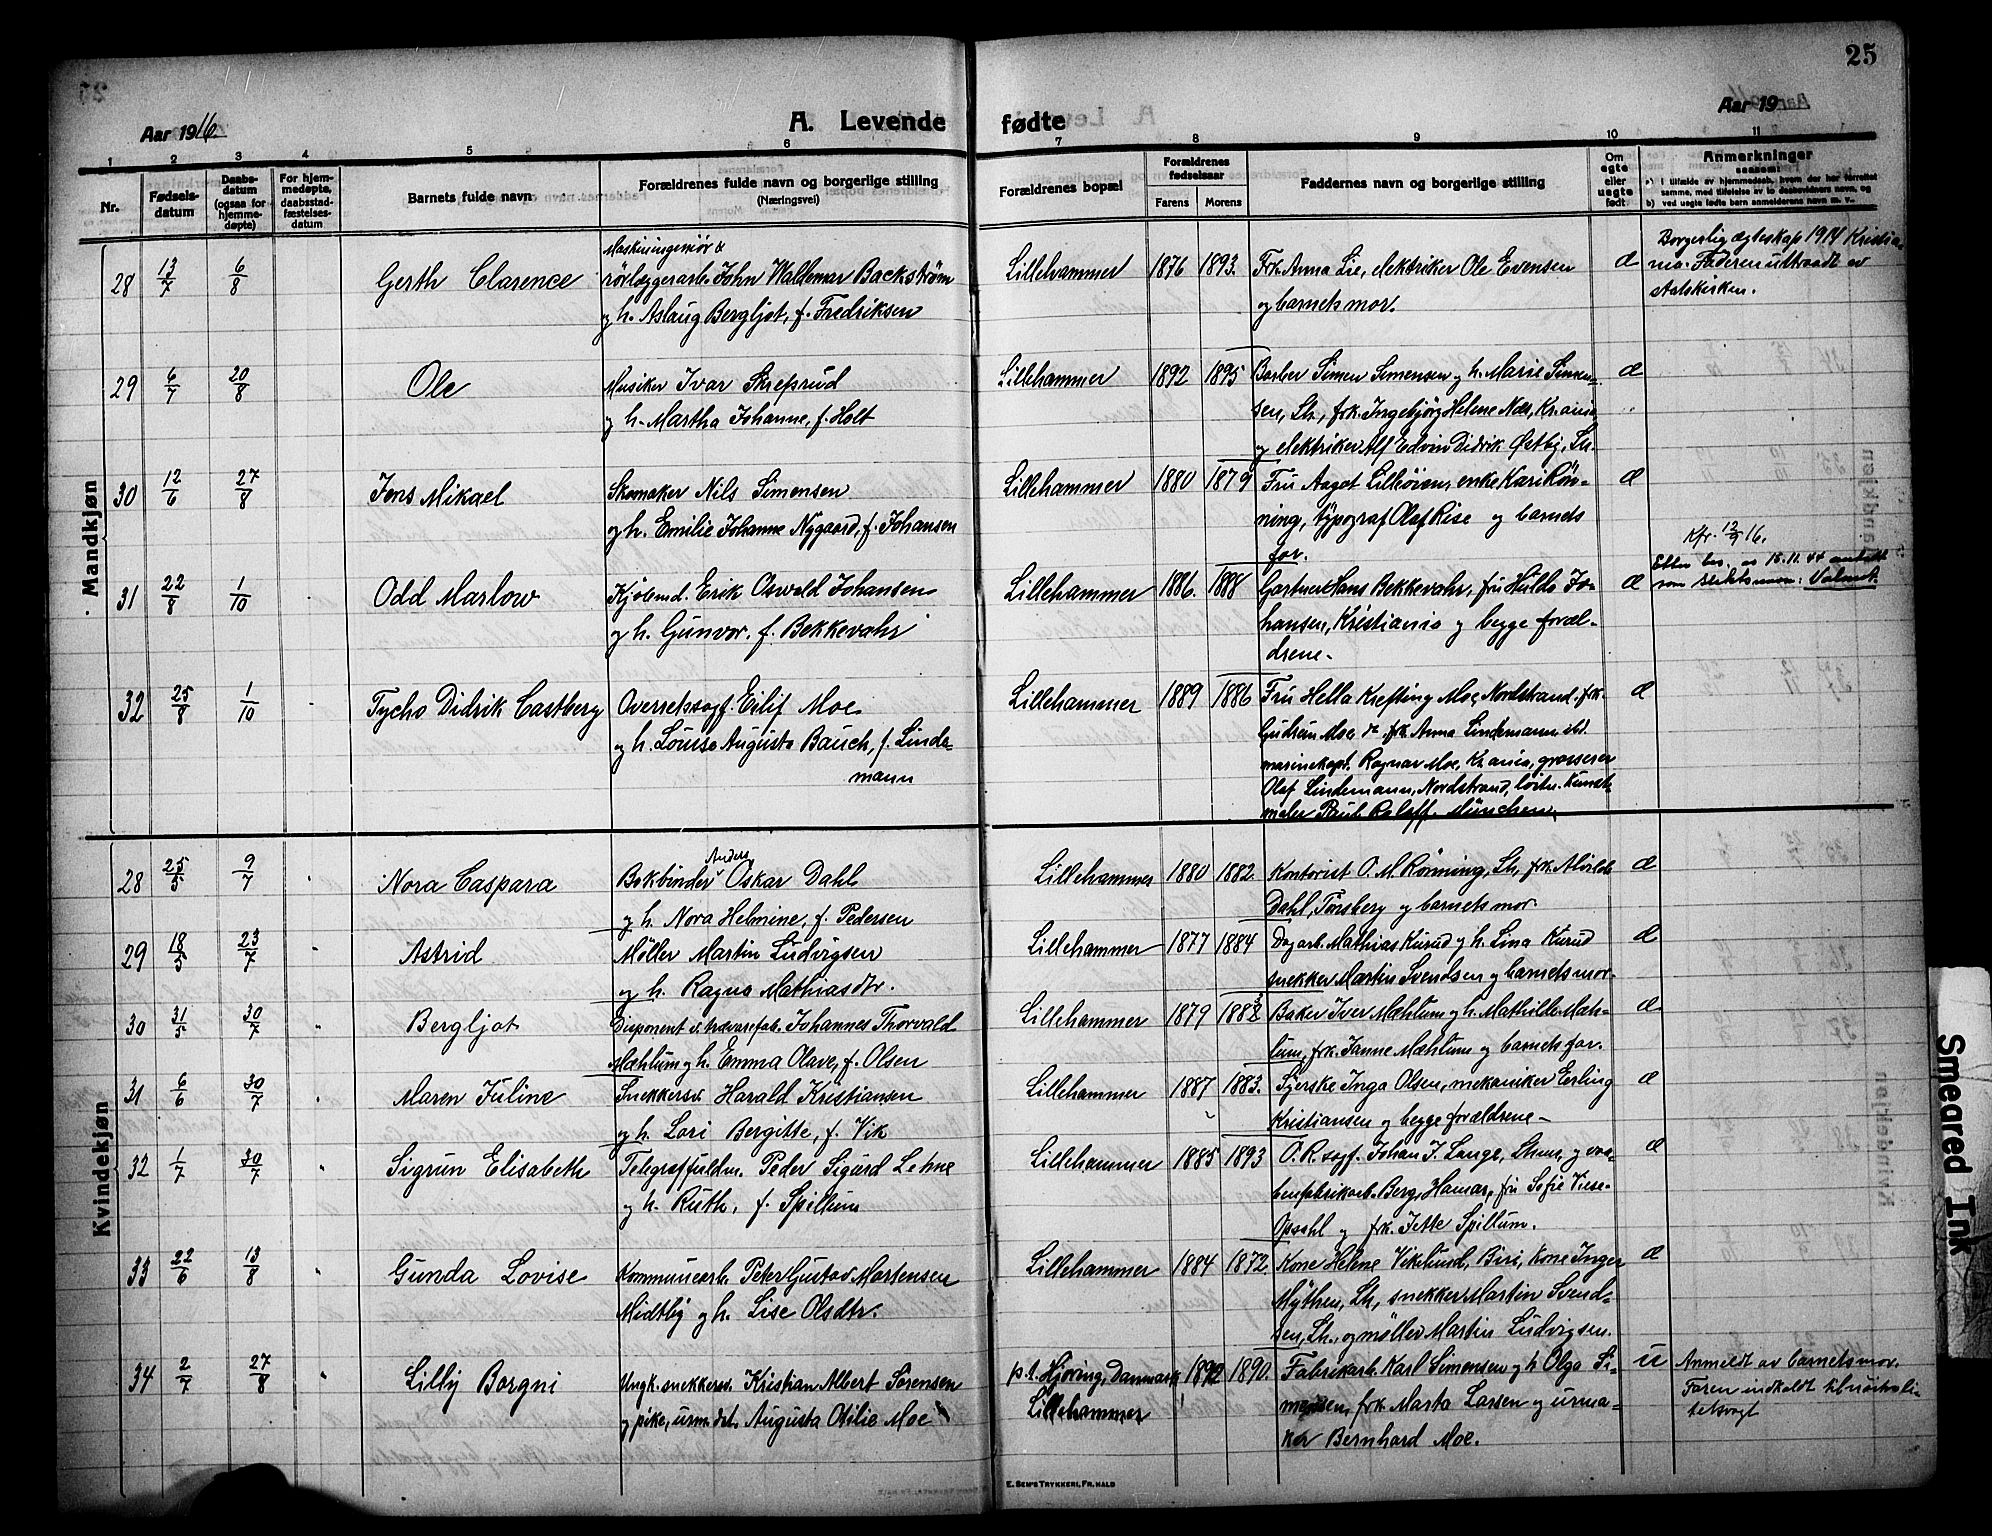 25
Aar 1916.
A. Levende fødte
Aar 19
1 2 3 4 5 6 7 8 9 10 11
Nr.
Fødsels-
datum
Daabs-
datum
(ogsaa for
hjemme-
døpte)
For hjem-
medøpte,
daabsstad-
fæstelses-
datum
Barnets fulde navn
Forældrenes fulde navn og borgerlige stilling
(Næringsvei)
Forældrenes bopæl
Forældrenes
fødselsaar
Farens Morens
Faddernes navn og borgerlige stilling
Om
egte
eller
uegte
født
Anmerkninger
saasom:
a) i tilfælde av hjemmedaab, hvem der har forrettet
samme, med tilføielse av to daabsvidners navn, og
b) ved uegte fødte barn anmelderens navn m. v.
Mandkjøn
28 13/7 6/8 Gerth Clarence
Maskiningeniør &
rørlæggerarb. John Waldemar Backstrøm
og h. Aslaug Bergljot, f. Fredriksen
Lillehammer 1876 1893.
Frk. Anna Lie, elektriker Ole Evensen
og barnets mor.
æ
Borgerlig ægteskap 1914 Kristia-
nia. Faderen uttraadt av
statskirken.
29 6/7 20/8 Ole
Musiker Ivar Skrefsrud
og h. Martha Johanne, f. Holt
Lillehammer 1892 1895
Barber Simen Simensen og h. Marie Simen-
sen, Lh., frk. Ingebjørg Helene Næs, Kr.ania
og elektriker Alf Edvin Didrik Østby, Lh.
æ
30 12/6 27/8 Jens Mikael
Skomaker Nils Simensen
og h. Emilie Johanne Nygaard, f. Johansen
Lillehammer 1880 1879
Fru Aagot Lilleøien, enke Kari Røn-
ning, typograf Olaf Rise og barnets
far.
æ
31 22/8 1/10 Odd Marlow
Kjøbmd. Erik Oswald Johansen
og h. Gunvor, f. Bekkevahr
Lillehammer 1886. 1888
Gartner Hans Bekkevahr, fru Hulda Jo-
hansen, Kristiania og begge foræl-
drene.
æ
Kfr. 12/9 16.
Efter bev. av 15.11.44 antatt
som slektsnavn: Valmot.
32 25/8 1/10 Tycho Didrik Castberg
Overretssagf. Eilif Moe
og h. Louise Augusta Bauch, f. Linde-
mann
Lillehammer 1889 1886
Fru Hella Krefting Moe, Nordstrand, frk.
Gudrun Moe do, frk. Anna Lindemann ibd.
marinekapt. Ragnar Moe, Kr.ania, grosserer
Olaf Lindemann, Nordstrand, løitn. kunst-
maler Paul Roloff. München.
æ
Kvindekjøn
28 25/5 9/7 Nora Caspara
Anders
Bokbinder Oskar Dahl
og h. Nora Helmine, f. Pedersen
Lillehammer 1880 1882.
Kontorist O. M. Rønning, Lh., frk. Alvilde
Dahl, Tørsberg og barnets mor.
æ
29 18/5 23/7 Astrid
Møller Martin Ludvigsen
og h. Ragna Mathiasdtr.
Lillehammer 1877 1884
Dagarb. Mathias Kurud og h. Lina Kurud
snekker Martin Svendsen og barnets mor.
æ
30 31/5 30/7 Bergljot
Disponent v. trævarefab. Johannes Thorvald
Mæhlum og h. Emma Olave, f. Olsen
Lillehammer 1879 1883
Baker Iver Mæhlum og h. Mathilde Mæh-
lum, frk. Janne Mæhlum og barnets far.
æ
31 6/6 30/7 Maren Juline
Snekkersv. Harald Kristiansen
og h. Lovi Bergitte, f. Vik
Lillehammer 1887 1883.
Syerske Inga Olsen, mekaniker Erling
Kristiansen og begge forældrene.
æ
32 1/7 30/7 Sigrun Elisabeth
Telegraffuldm. Peder Sigurd Lehne
og h. Ruth, f. Spillum
Lillehammer 1885 1893
O.R.sagf. Johan J. Lange, Lhmr, og
Berg, Hamar, fru Sofie Viese-
Opsahl og frk. Jette Spillum.
æ
33 22/6 13/8 Gunda Lovise
Kommunearb. Peter Gustav Mortensen
Midtby og h. Lise Olsdtr.
Lillehammer 1884 1872.
Kone Helene Viklund, Biri, Kone Inger
Mythen, Lh, snekker Martin Svend-
sen, Lh., og møller Martin Ludvigsen.
æ
34 2/7 27/8 Lilly Borgni
Ungk. snekkersv. Kristian Albert Sørensen
og pike, urm.dtr. Augusta Otilie Moe
p.t. Hjøring, Danmark 1892 1890.
Lillehammer
Fabrikarb. Karl Simensen og h. Olga Si-
mensen, frk. Marta Larsen og urma-
ker Bernhard Moe.
u
Anmeldt av barnets mor.
Faren indkaldt til nøitrali-
tetsvagt
E. Sem's Trykkeri, Fr.hald
Smeared Ink